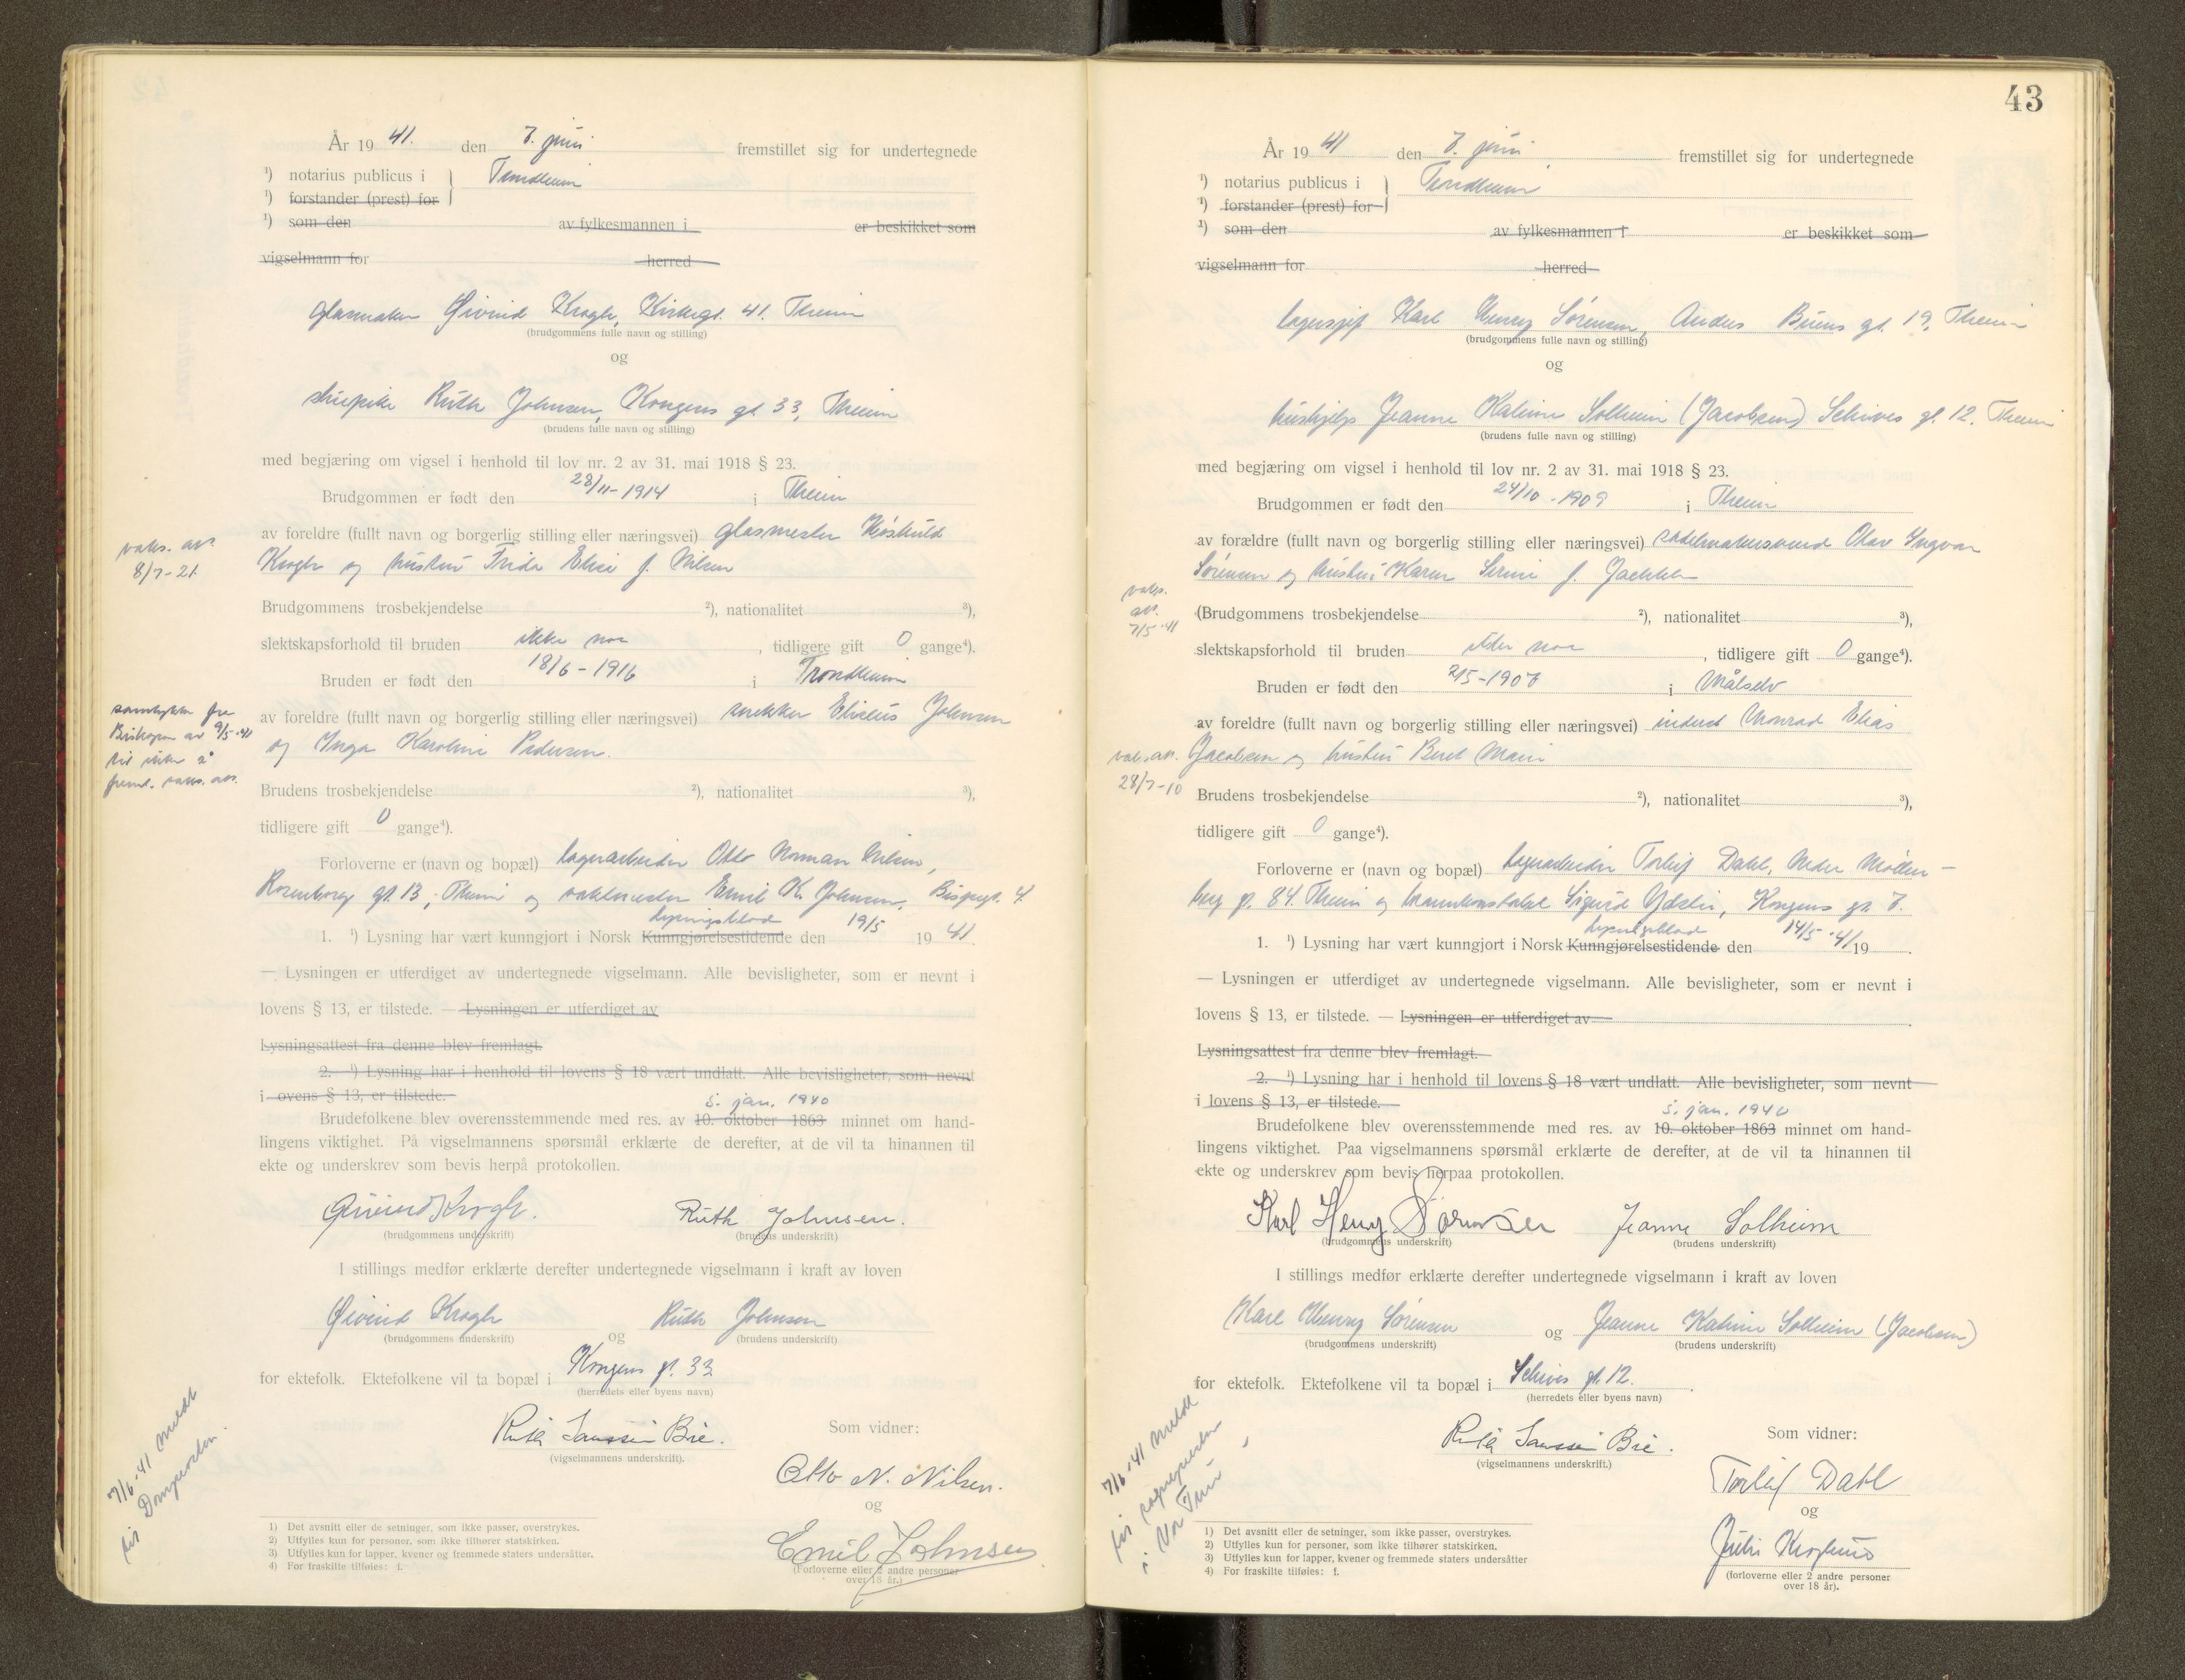 År 19 41. den 7. juni fremstillet sig for undertegnede
¹) notarius publicus i } Trondheim
¹) forstander (prest) for
¹) som den av fylkesmannen i er beskikket som
vigselmann for herred
Øivind Krogh, Kirkegt. 41. Theim
(brudgommens fulle navn og stilling)
og
Ruth Johnsen, Kongens gt 33, Theim
(brudens fulle navn og stilling)
med begjæring om vigsel i henhold til lov nr. 2 av 31. mai 1918 § 23.
Brudgommen er født den 28/11-1914 i Theim
av foreldre (fullt navn og borgerlig stilling eller næringsvei) glasmester
Krogh og hustru Frida Elise f. Nilsen
vaks. att.
8/7-21.
Brudgommens trosbekjendelse ²), nationalitet ³),
slektskapsforhold til bruden ikke noe, tidligere gift 0 gange⁴).
Bruden er født den 18/6-1916 i Trondheim
av foreldre (fullt navn og borgerlig stilling eller næringsvei) snekker Eliseus Johnsen
og Inga Karoline Pedersen.
samtykke fra
Biskopen av 9/5-41
til ikke å
freml. vaks. att.
Brudens trosbekjendelse ²), nationalitet ³),
tidligere gift 0 gange⁴).
Forloverne er (navn og bopæl) lagerarbeider Otto Norman Nilsen,
Rosenborg gt. 13, Theim og vaktmester Emil K. Johnsen, Bispegt. 4.
Lysningsblad
1. ¹) Lysning har vært kunngjort i Norsk Kunngjørelsestidende den 19/5 19 41.
— Lysningen er utferdiget av undertegnede vigselmann. Alle bevisligheter, som er nevnt i
lovens § 13, er tilstede. — Lysningen er utferdiget av
Lysningsattest fra denne blev fremlagt.
2. ¹) Lysning har i henhold til lovens § 18 vært undlatt. Alle bevisligheter, som nevnt
i ovens § 13, er tilstede.
5. jan. 1940
Brudefolkene blev overensstemmende med res. av 10. oktober 1863 minnet om hand-
lingens viktighet. På vigselmannens spørsmål erklærte de derefter, at de vil ta hinannen til
ekte og underskrev som bevis herpå protokollen.
Øivind Krogh. Ruth Johnsen.
(brudgommens underskrift) (brudens underskrift)
I stillings medfør erklærte derefter undertegnede vigselmann i kraft av loven
Øivind Krogh og Ruth Johnsen
(brudgommens underskrift) (brudens underskrift)
for ektefolk. Ektefolkene vil ta bopæl i Kongens gt. 33
(herredets eller byens navn)
Bie.
(vigselmannens underskrift).
Som vidner:
Otto N. Nilsen.
og
Emil Johnsen
(Forloverne eller 2 andre personer
over 18 år.)
7/6-41 meldt
til Domprosten.
1) Det avsnitt eller de setninger, som ikke passer, overstrykes.
2) Utfylles kun for personer, som ikke tilhører statskirken.
3) Utfylles kun for lapper, kvener og fremmede staters undersåtter.
4) For fraskilte tilføies: f.
43
År 19 41 den 7. juni fremstillet sig for undertegnede
¹) notarius publicus i } Trondheim
¹) forstander (prest) for
¹) som den av fylkesmannen i er beskikket som
vigselmann for herred
lagersjef Karl Henry Sørensen, Anders Buens gt. 19, Theim
(brudgommens fulle navn og stilling)
og
hushjelp Jeanne Katrine Solheim (Jacobsen) Schives gt. 12. Theim
(brudens fulle navn og stilling)
med begjæring om vigsel i henhold til lov nr. 2 av 31. mai 1918 § 23.
Brudgommen er født den 24/10-1909 i Theim
av forældre (fullt navn og borgerlig stilling eller næringsvei) Olav Ingvar
Sørensen og hustru Karen f.
vaks.
att.
7/5-41
(Brudgommens trosbekjendelse ²), nationalitet ³),
slektskapsforhold til bruden noe, tidligere gift 0 gange⁴).
Bruden er født den i Målselv
av foreldre (fullt navn og borgerlig stilling eller næringsvei) inderst Monrad Elias
Jacobsen og hustru Berit Marie
vak. att.
28/7-10
Brudens trosbekjendelse ²), nationalitet ³),
tidligere gift 0 gange⁴).
Forloverne er (navn og bopæl) lagerarbeider Torleif Dahl, Nedre Møllen-
berg gt. 84. Theim og Sigurd, Kongens gt. 7.
Lysningsblad
1. ¹) Lysning har vært kunngjort i Norsk Kunngjørelsestidende den 14/5-41 19 .
— Lysningen er utferdiget av undertegnede vigselmann. Alle bevisligheter, som er nevnt i
lovens § 13, er tilstede. — Lysningen er utferdiget av
Lysningsattest fra denne blev fremlagt.
2. ¹) Lysning har i henhold til lovens § 18 vært undlatt. Alle bevisligheter, som nevnt
i lovens § 13, er tilstede.
5. jan. 1940
Brudefolkene blev overensstemmende med res. av 10. oktober 1863 minnet om hand-
lingens viktighet. Paa vigselmannens spørsmål erklærte de derefter, at de vil ta hinannen til
ekte og underskrev som bevis herpaa protokollen.
Karl Henry Sørensen Jeanne Solheim
(brudgommens underskrift) (brudens underskrift)
I stillings medfør erklærte derefter undertegnede vigselmann i kraft av loven
Karl Henry Sørensen og Jeanne Katrine Solheim (Jacobsen)
(brudgommens underskrift) (brudens underskrift)
for ektefolk. Ektefolkene vil ta bopæl i Schives gt. 12.
(herredets eller byens navn)
Bie.
(vigselmannens underskrift.)
Som vidner:
Torleif Dahl
og
(forloverne eller 2 andre personer
over 18 år).
7/6-41 meldt
til sognepresten
i Vor Frue
1) Det avsnitt eller de setninger, som ikke passer, overstrykes.
2) Utfylles kun for personer, som ikke tilhører statskirken.
3) Utfylles kun for lapper, kvener og fremmede staters undersåtter
4) For fraskilte tilføies: f.